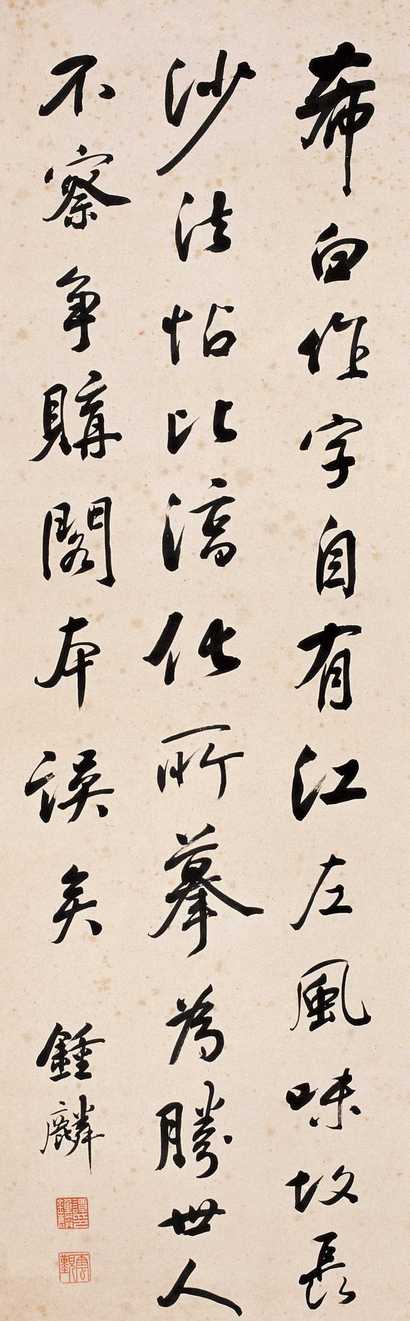 希白作字自有江左風味故長
沙法帖比淳化所摹為勝世人
不察爭購閣本誤矣
鍾麟